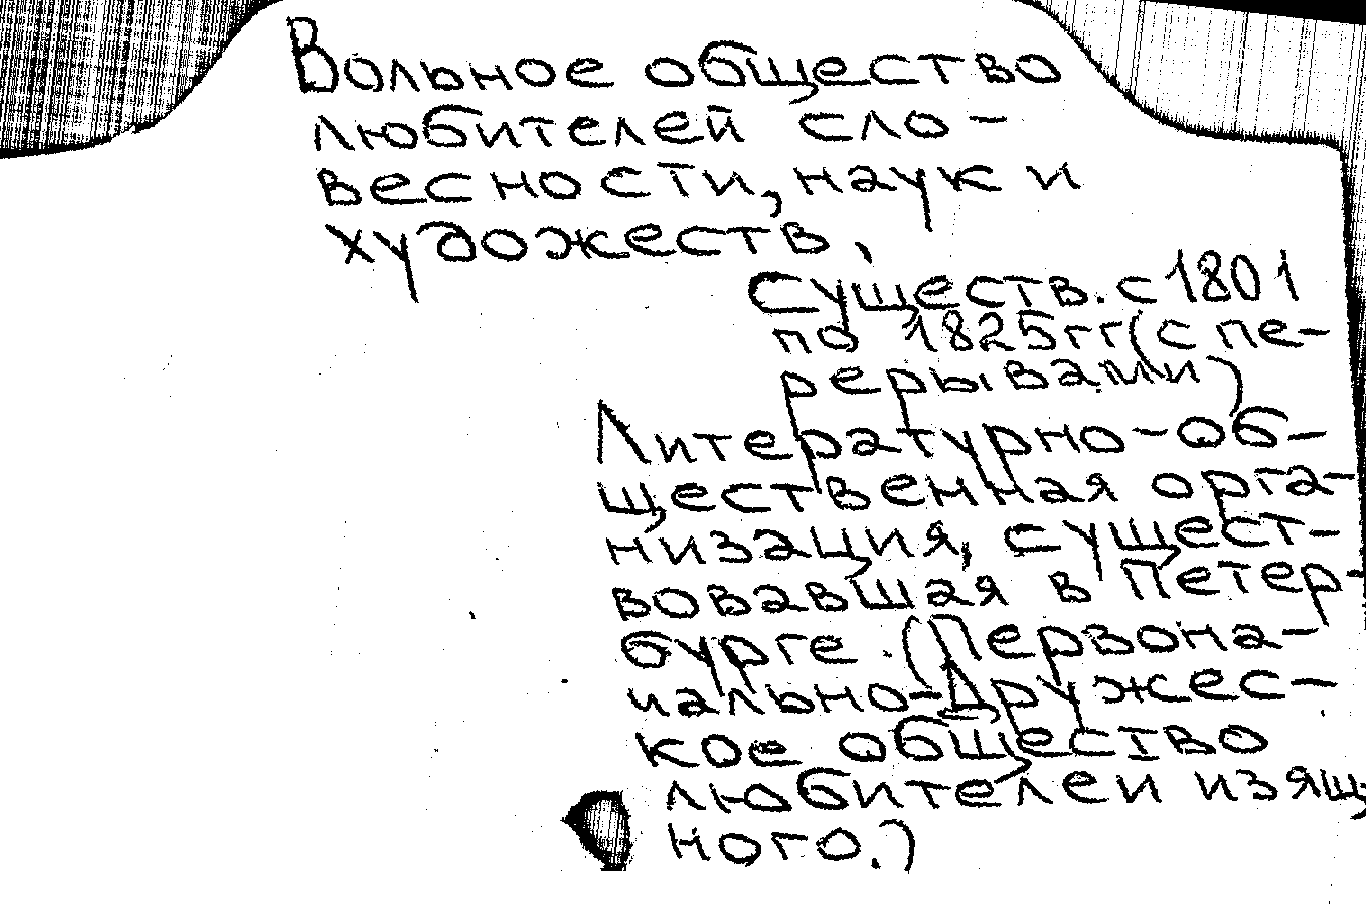 Вольное общество
любителей сло-
весности, наук и
художеств.
Существ. с 1801
по 1825гг(с пе-
рерывами)
Литературно-об-
щественная орга-
низация, сущест-
вовавшая в Петер-
бурге. (Первона-
чально-Дружес-
кое общество
любителей изящ-
ного.)